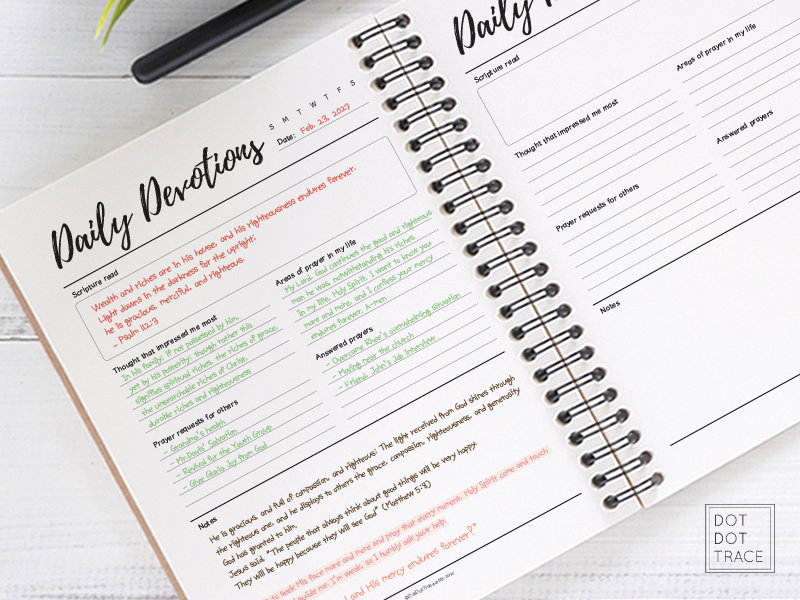 Daily Devotions
S M T W T F S
Date: Feb. 23, 2027
Scripture read
Wealth and riches are in his house, and his righteousness endures forever.
Light dawns in the darkness for the upright;
he is gracious, merciful, and righteous.
- Psalm 112:3
Thought that impressed me most
In his family, if not possessed by him,
yet by his posterity; though rather this
signifies spiritual riches, the riches of grace,
the unsearchable riches of Christ,
durable riches and righteousness
Areas of prayer in my life
My Lord, God continues the good and righteous
man he was, notwithstanding His riches.
In my life, Holy Spirit, I want to know you
more and more, and I confess your mercy
endures forever. A-men
Prayer requests for others
- Grandma's health
- Mr.Davis' Salvation
- Revival for the Youth Group
- Give Gloria Joy from God
Answered prayers
- Overcome Rhee's overwhelming situation
- Moving near the church
- Friend, John's Job Interview
Notes
He is gracious, and full of compassion, and righteous: The light received from God shines through
the righteous one, and he displays to others the grace, compassion, righteousness, and generosity
God has granted to him.
Jesus said, "The people that always think about good things will be very happy.
They will be happy because they will see God" (Matthew 5:8)
to seek His face more and more and pray that every moment, Holy Spirit come and touch
guide me. I'm weak, so I humbly ask your help
and His mercy endures forever!"
Daily
Scripture read
Areas of prayer in my life
Thought that impressed me most
Answered prayers
Prayer requests for others
Notes
DOT
DOT
TRACE